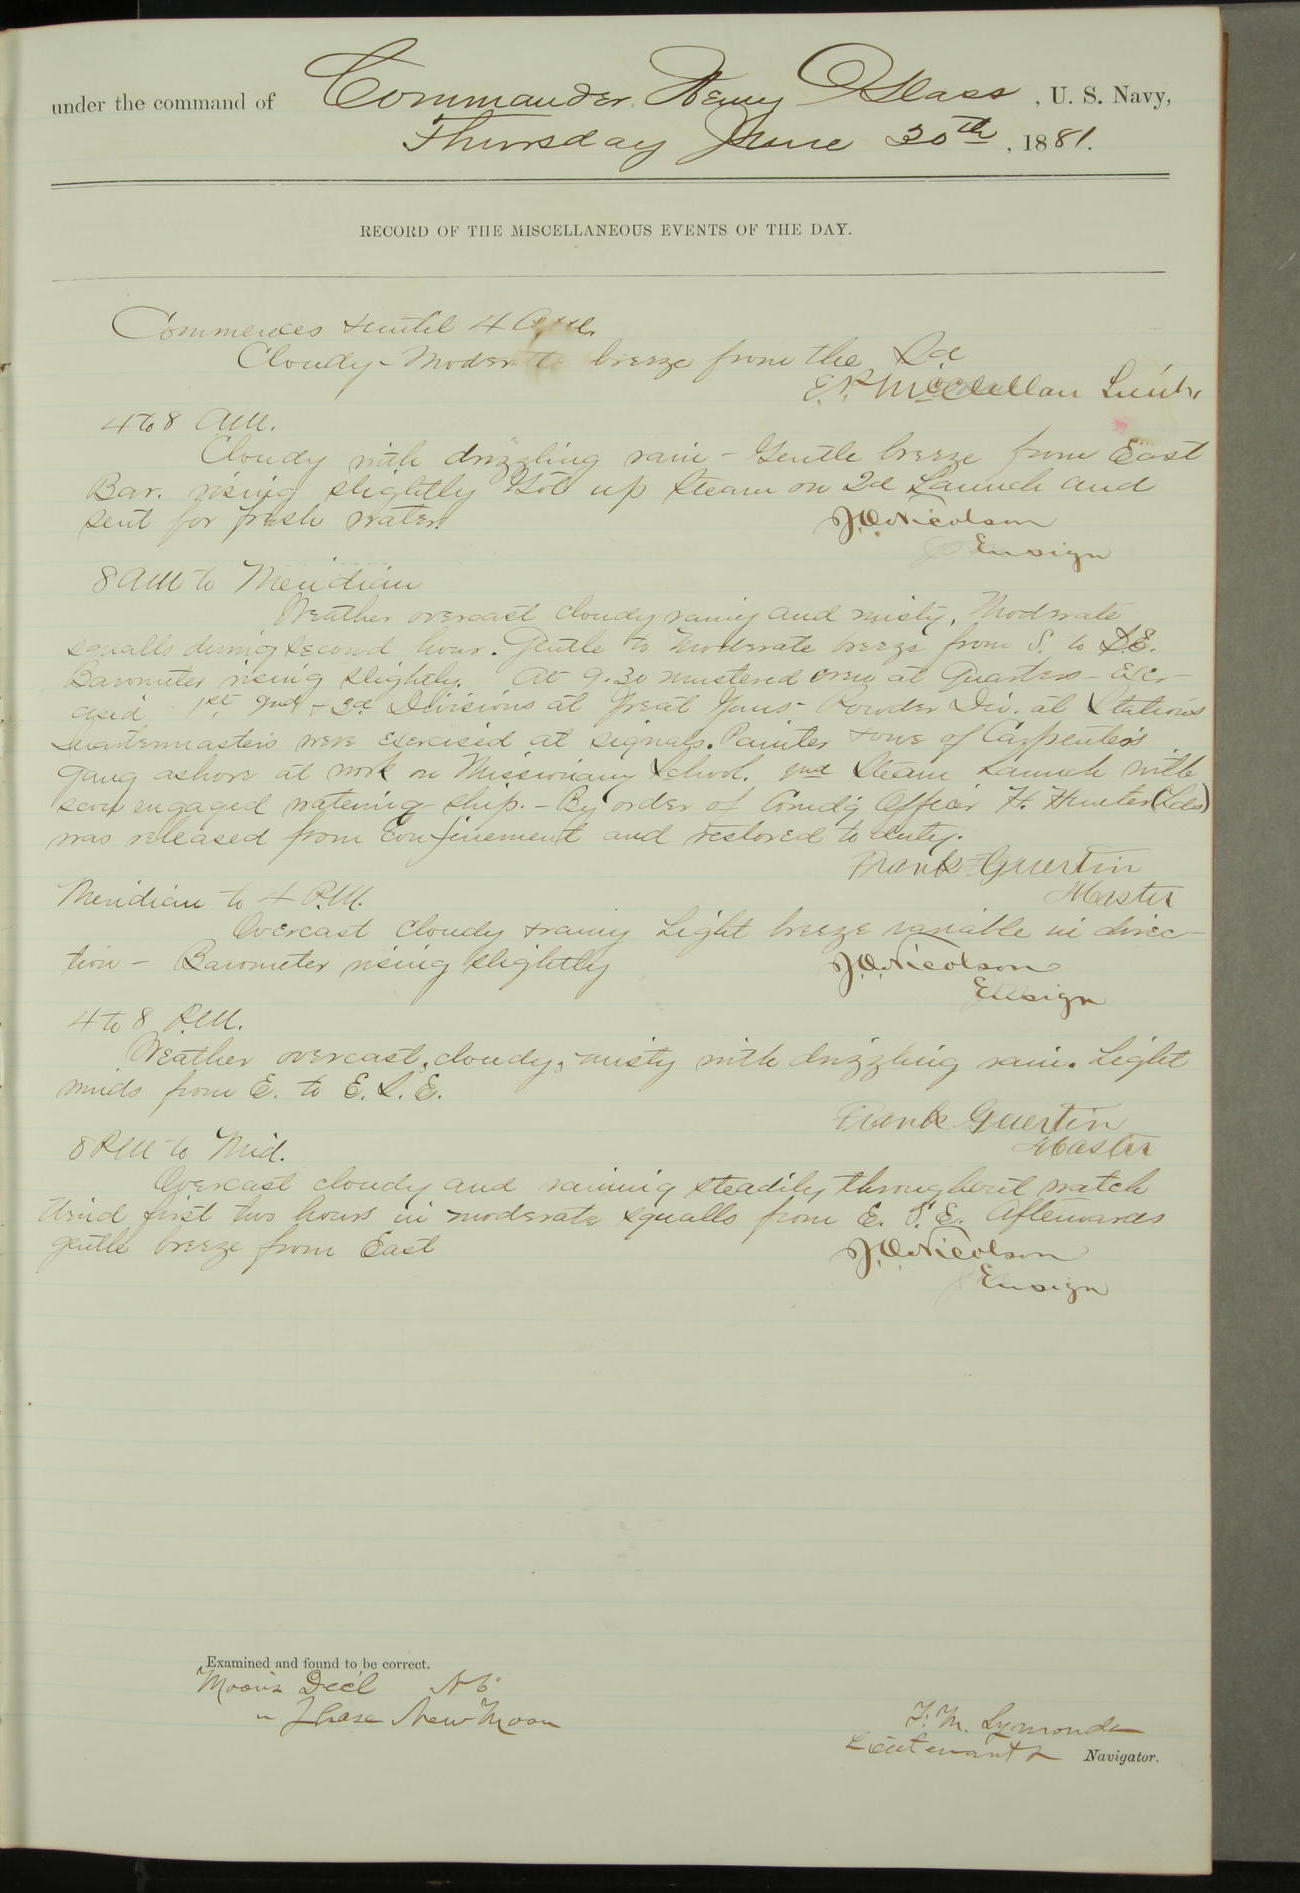 under the command of Commander Henry Glass, U. S. Navy,
Thursday June 30th, 1881.
RECORD OF THE MISCELLANEOUS EVENTS OF THE DAY.
Commences & until 4 A.M.
Cloudy - Moderate breeze from the Sd
E. McClellan Lieut.
4 to 8 A.M.
Cloudy with drizzling rain - Gentle breeze from East
Bar. rising slightly Got up steam on 2d Launch and
sent for fresh water.
J.O. Nicolson
Ensign
8 AM to Meridian
Weather overcast cloudy rainy and misty. Moderate
squalls during second hour. Gentle to moderate breeze from S. to S.E.
Barometer rising slightly. At 9.30 mustered crew at Quarters - Exer-
cised 1st 2nd - 3d Divisions at Great Guns - Powder Div. at Stations
Quartermasters were exercised at signals. Painter & one of Carpenters
gang ashore at work on Missionary School. 2nd Steam Launch with
scow engaged watering ship. - By order of Comd'g Officer H. Hunter (Lds)
was released from confinement and restored to duty.
Frank Guertin
Master
Meridian to 4 P.M.
Overcast cloudy & rainy Light breeze variable in direc-
tion - Barometer rising slightly
J.O. Nicolson
Ensign
4 to 8 P.M.
Weather overcast, cloudy, misty with drizzling rain. Light
winds from E. to E.S.E.
Frank Guertin
Master
8 PM to Mid.
Overcast cloudy and raining steadily throughout watch
Wind first two hours in moderate squalls from E.S.E. Afterwards
gentle breeze from East
J.O. Nicolson
Ensign
Examined and found to be correct.
Moon's Decl N 6°
" Phase New Moon
F. M. Symonds
Lieutenant & Navigator.